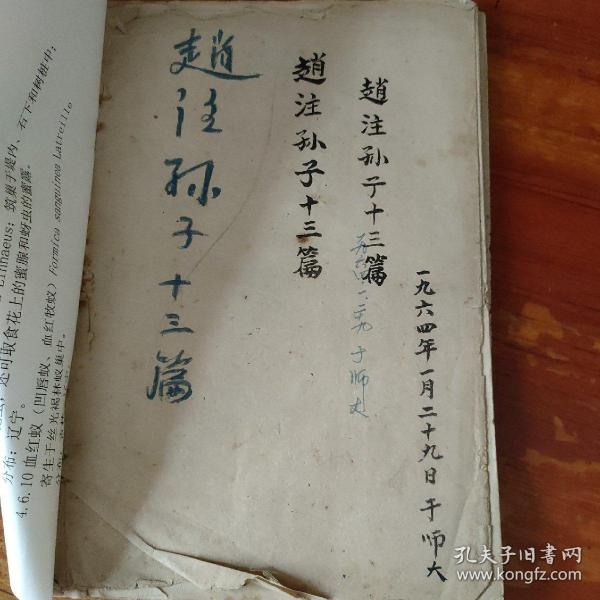 趙注孙子十三篇
趙注孙子十三篇
趙注孙子十三篇
于师大
一九六四年一月二十九日于师大
Linnaeus; 筑巢于堤内、石下和树桩中;
还可取食花上的蜜腺和蚜虫的蜜露。
分布: 辽宁。
4.6.10 血红蚁 (凹唇蚁、血红牧蚁) Formica sanguinea Latreille
寄生于丝光褐林蚁巢中。
孔夫子旧书网
www.kongfz.com